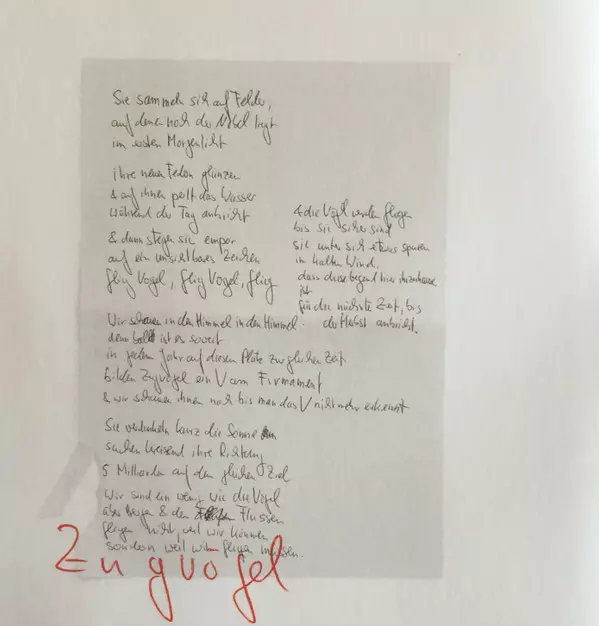 Sie sammeln sich auf Felder,
auf denen noch der Nebel liegt
im ersten Morgenlicht
ihre neuen Federn glänzen
& auf ihnen perlt das Wasser
während der Tag anbricht
& dann steigen sie empor
auf ein unsichtbares Zeichen
flieg Vogel, flieg Vogel, flieg
& die Vögel werden fliegen
bis sie sicher sind
sie unter sich etwas spüren
im kalten Wind,
dass diese Gegend hier ihr zuhause
ist
für die nächste Zeit, bis
der Herbst anbricht.
Wir schauen in den Himmel in den Himmel
denn bald ist es soweit
in jedem Jahr auf diesem Platz zur gleichen Zeit
bilden Zugvögel ein V am Firmament
& wir schauen ihnen nach bis man das V nicht mehr erkennt
Sie verdunkeln kurz die Sonne
suchen kreisend ihre Richtung
5 Milliarden auf dem gleichen Ziel
Wir sind ein wenig wie die Vögel
über Berge & den Flüssen
fliegen nicht, weil wir können
sondern weil wir fliegen müssen.
Zugvögel